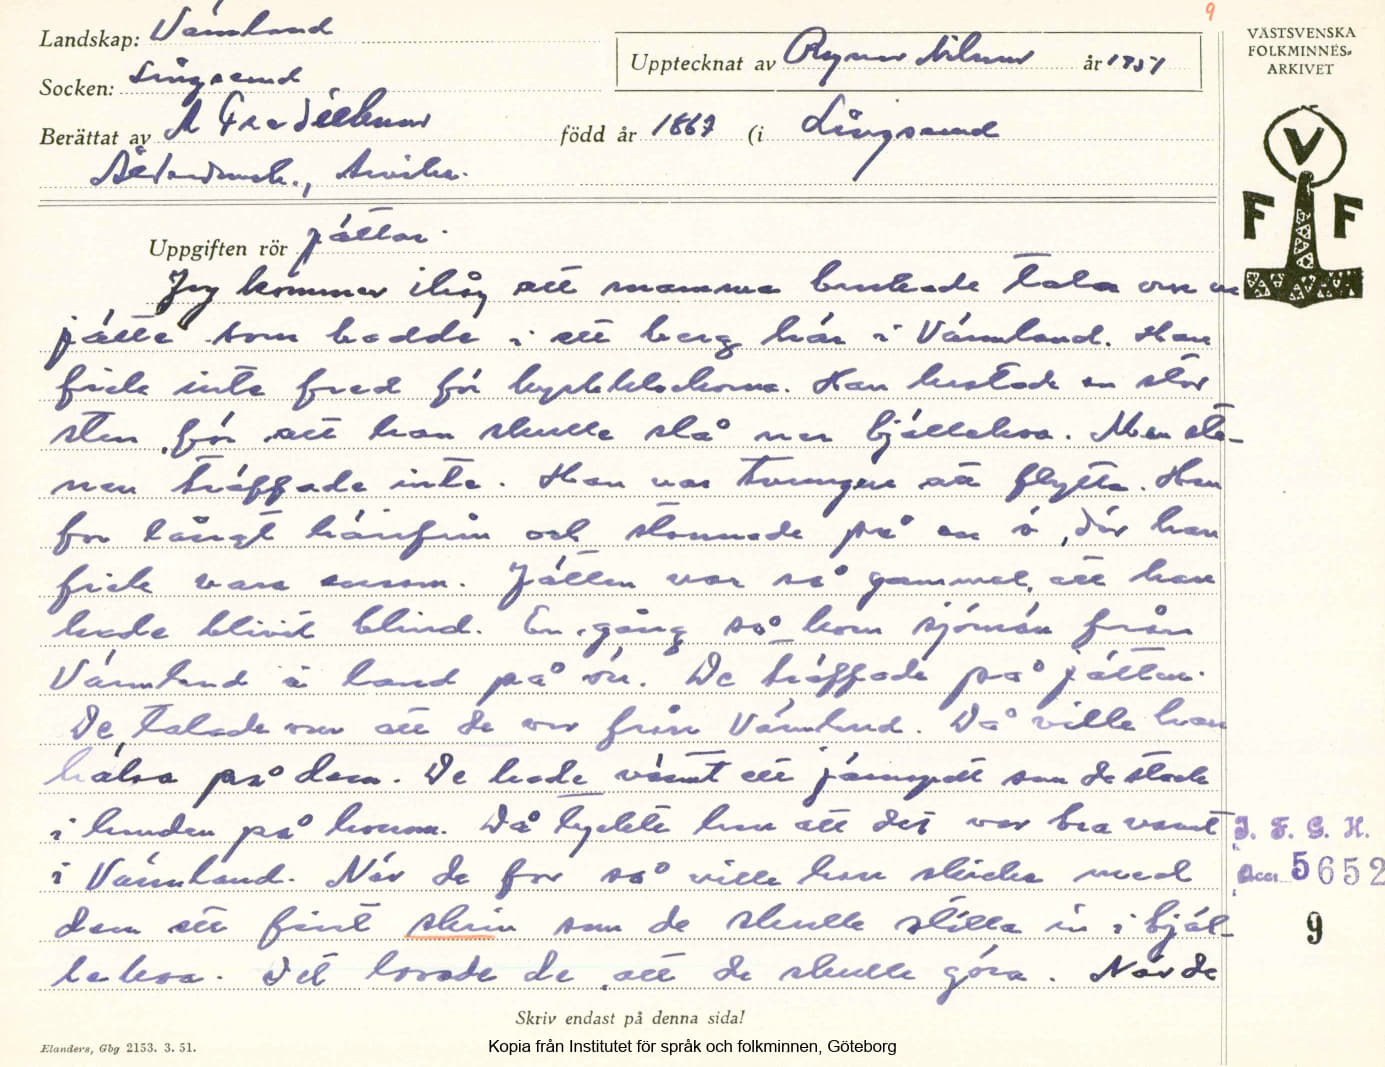 9
Landskap: Värmland
VÄSTSVENSKA
FOLKMINNES-
ARKIVET
Upptecknat av Ragnar Nilsson år 1951
Socken: Långserud
Berättat av A Fredriksson född år 1867 (i Långserud
Ålderdomsh., Arvika.
V
F F
Uppgiften rör jättar.
Jag kommer ihåg att mamma brukade tala om en
jätte som bodde i ett berg här i Värmland. Han
fick inte fred för kyrkklockorna. Han kastade en stor
sten för att han skulle slå ner bjällekoa. Men ste-
nen träffade inte. Han var tvungen att flytta. Han
for långt härifrån och stannade på en ö, där han
fick vara ensam. Jätten var så gammel, att han
hade blivit blind. En gång så kom sjömän från
Värmland i land på ön. De träffade på jätten.
De talade om att de var från Värmland. Då ville han
hälsa på dem. De hade värmt ett järnspett som de stack
i handen på honom. Då tyckte han att det var bra varmt
i Värmland. När de for så ville han skicka med
dem ett fint skrin som de skulle ställa in i bjäl-
lekoa. Det lovade de, att de skulle göra. När de
I. F. G. H.
Acc. 5652
9
Skriv endast på denna sida!
Elanders, Gbg 2153. 3. 51.
Kopia från Institutet för språk och folkminnen, Göteborg